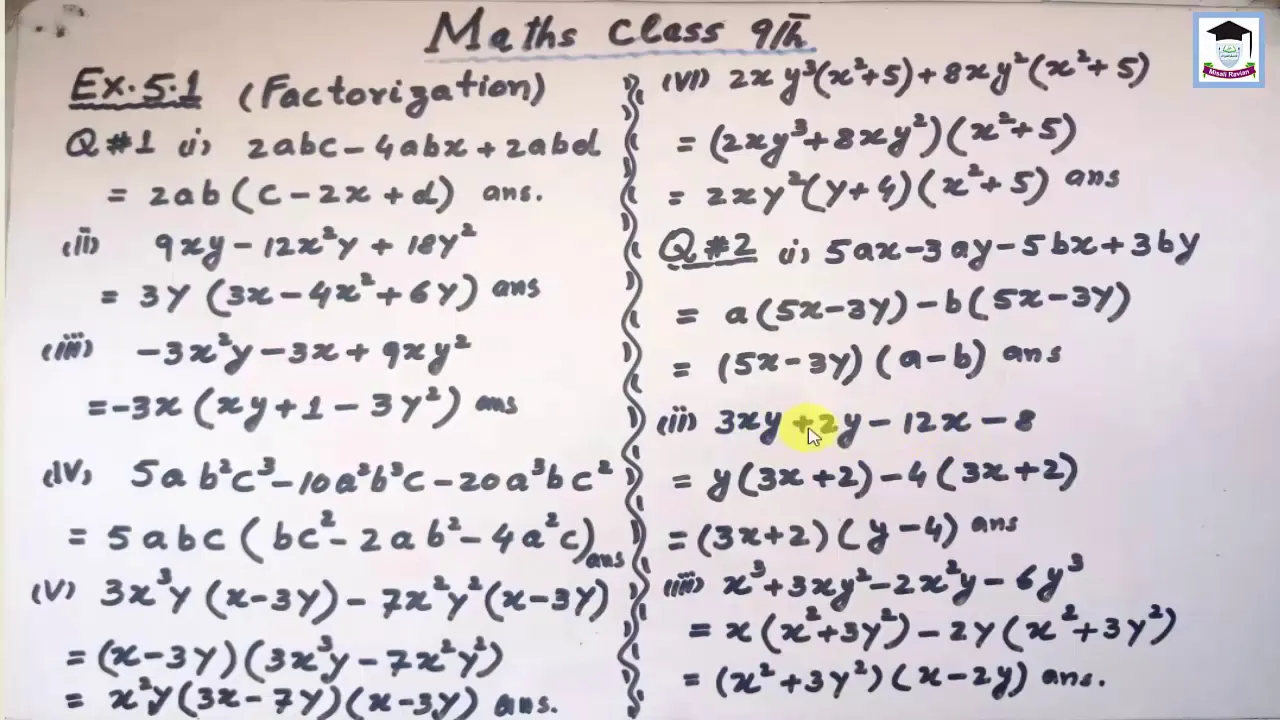 Maths Class 9th
Ex.5.1 (Factorization)
Q#1 (i) 2abc - 4abx + 2abd
= 2ab(c - 2x + d) ans.
(ii) 9xy - 12x²y + 18y²
= 3y (3x - 4x² + 6y) ans
(iii) -3x²y - 3x + 9xy²
= -3x (xy + 1 - 3y²) ans
(iv) 5ab²c³ - 10a²b³c - 20a³bc²
= 5abc (bc² - 2ab² - 4a²c) ans
(v) 3x³y (x-3y) - 7x²y²(x-3y)
= (x-3y)(3x³y - 7x²y²)
= x²y(3x-7y)(x-3y) ans.
(vi) 2xy³(x²+5) + 8xy²(x²+5)
= (2xy³+8xy²)(x²+5)
= 2xy²(y+4)(x²+5) ans
Q#2 (i) 5ax-3ay-5bx+3by
= a(5x-3y) - b(5x-3y)
= (5x-3y)(a-b) ans
(ii) 3xy+2y-12x-8
= y(3x+2)-4(3x+2)
= (3x+2)(y-4) ans
(iii) x³+3xy²-2x²y-6y³
= x(x²+3y²)-2y(x²+3y²)
= (x²+3y²)(x-2y) ans.
Misali Ravian